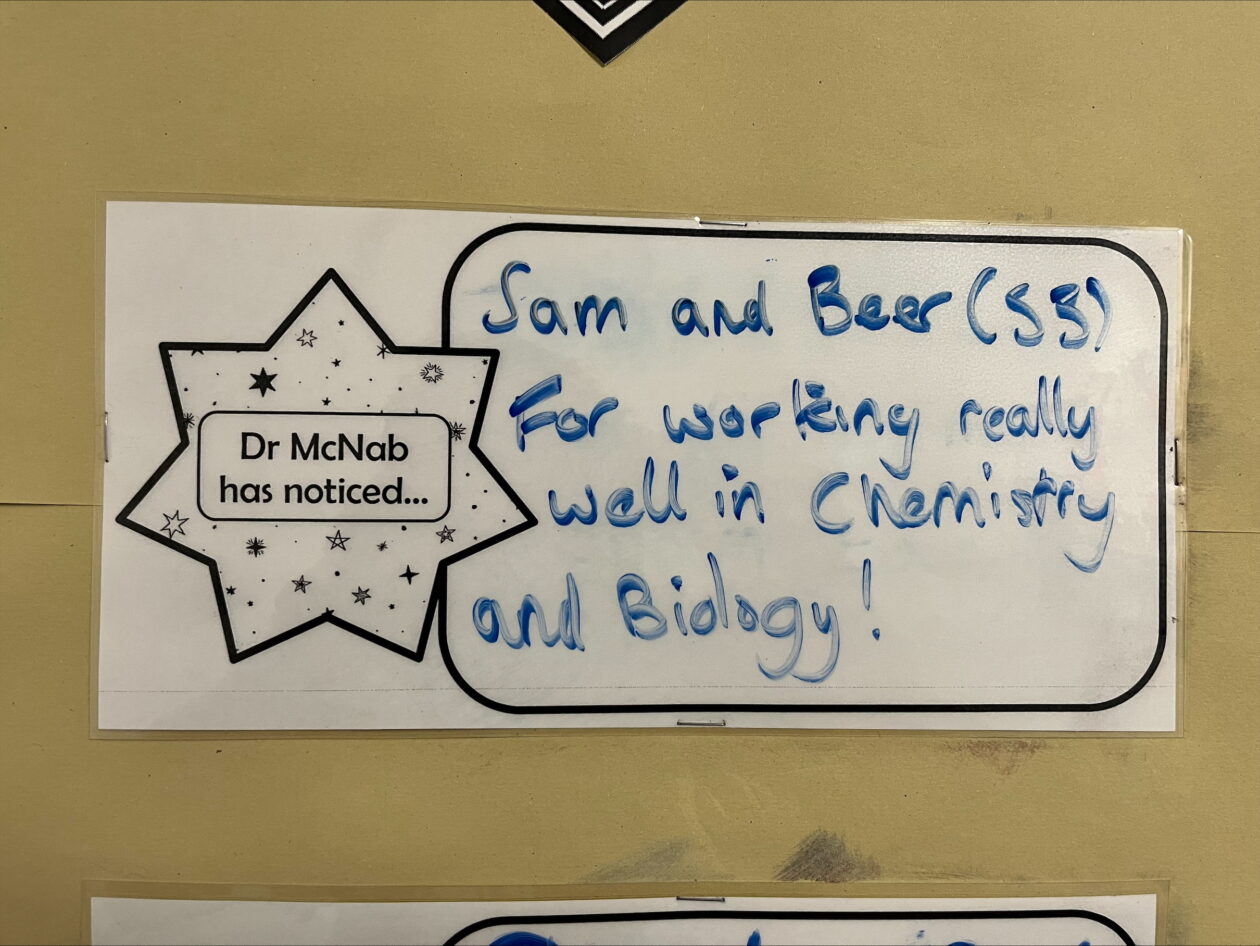 Dr McNab
has noticed...
Sam and Beer (S3)
For working really
well in Chemistry
and Biology!